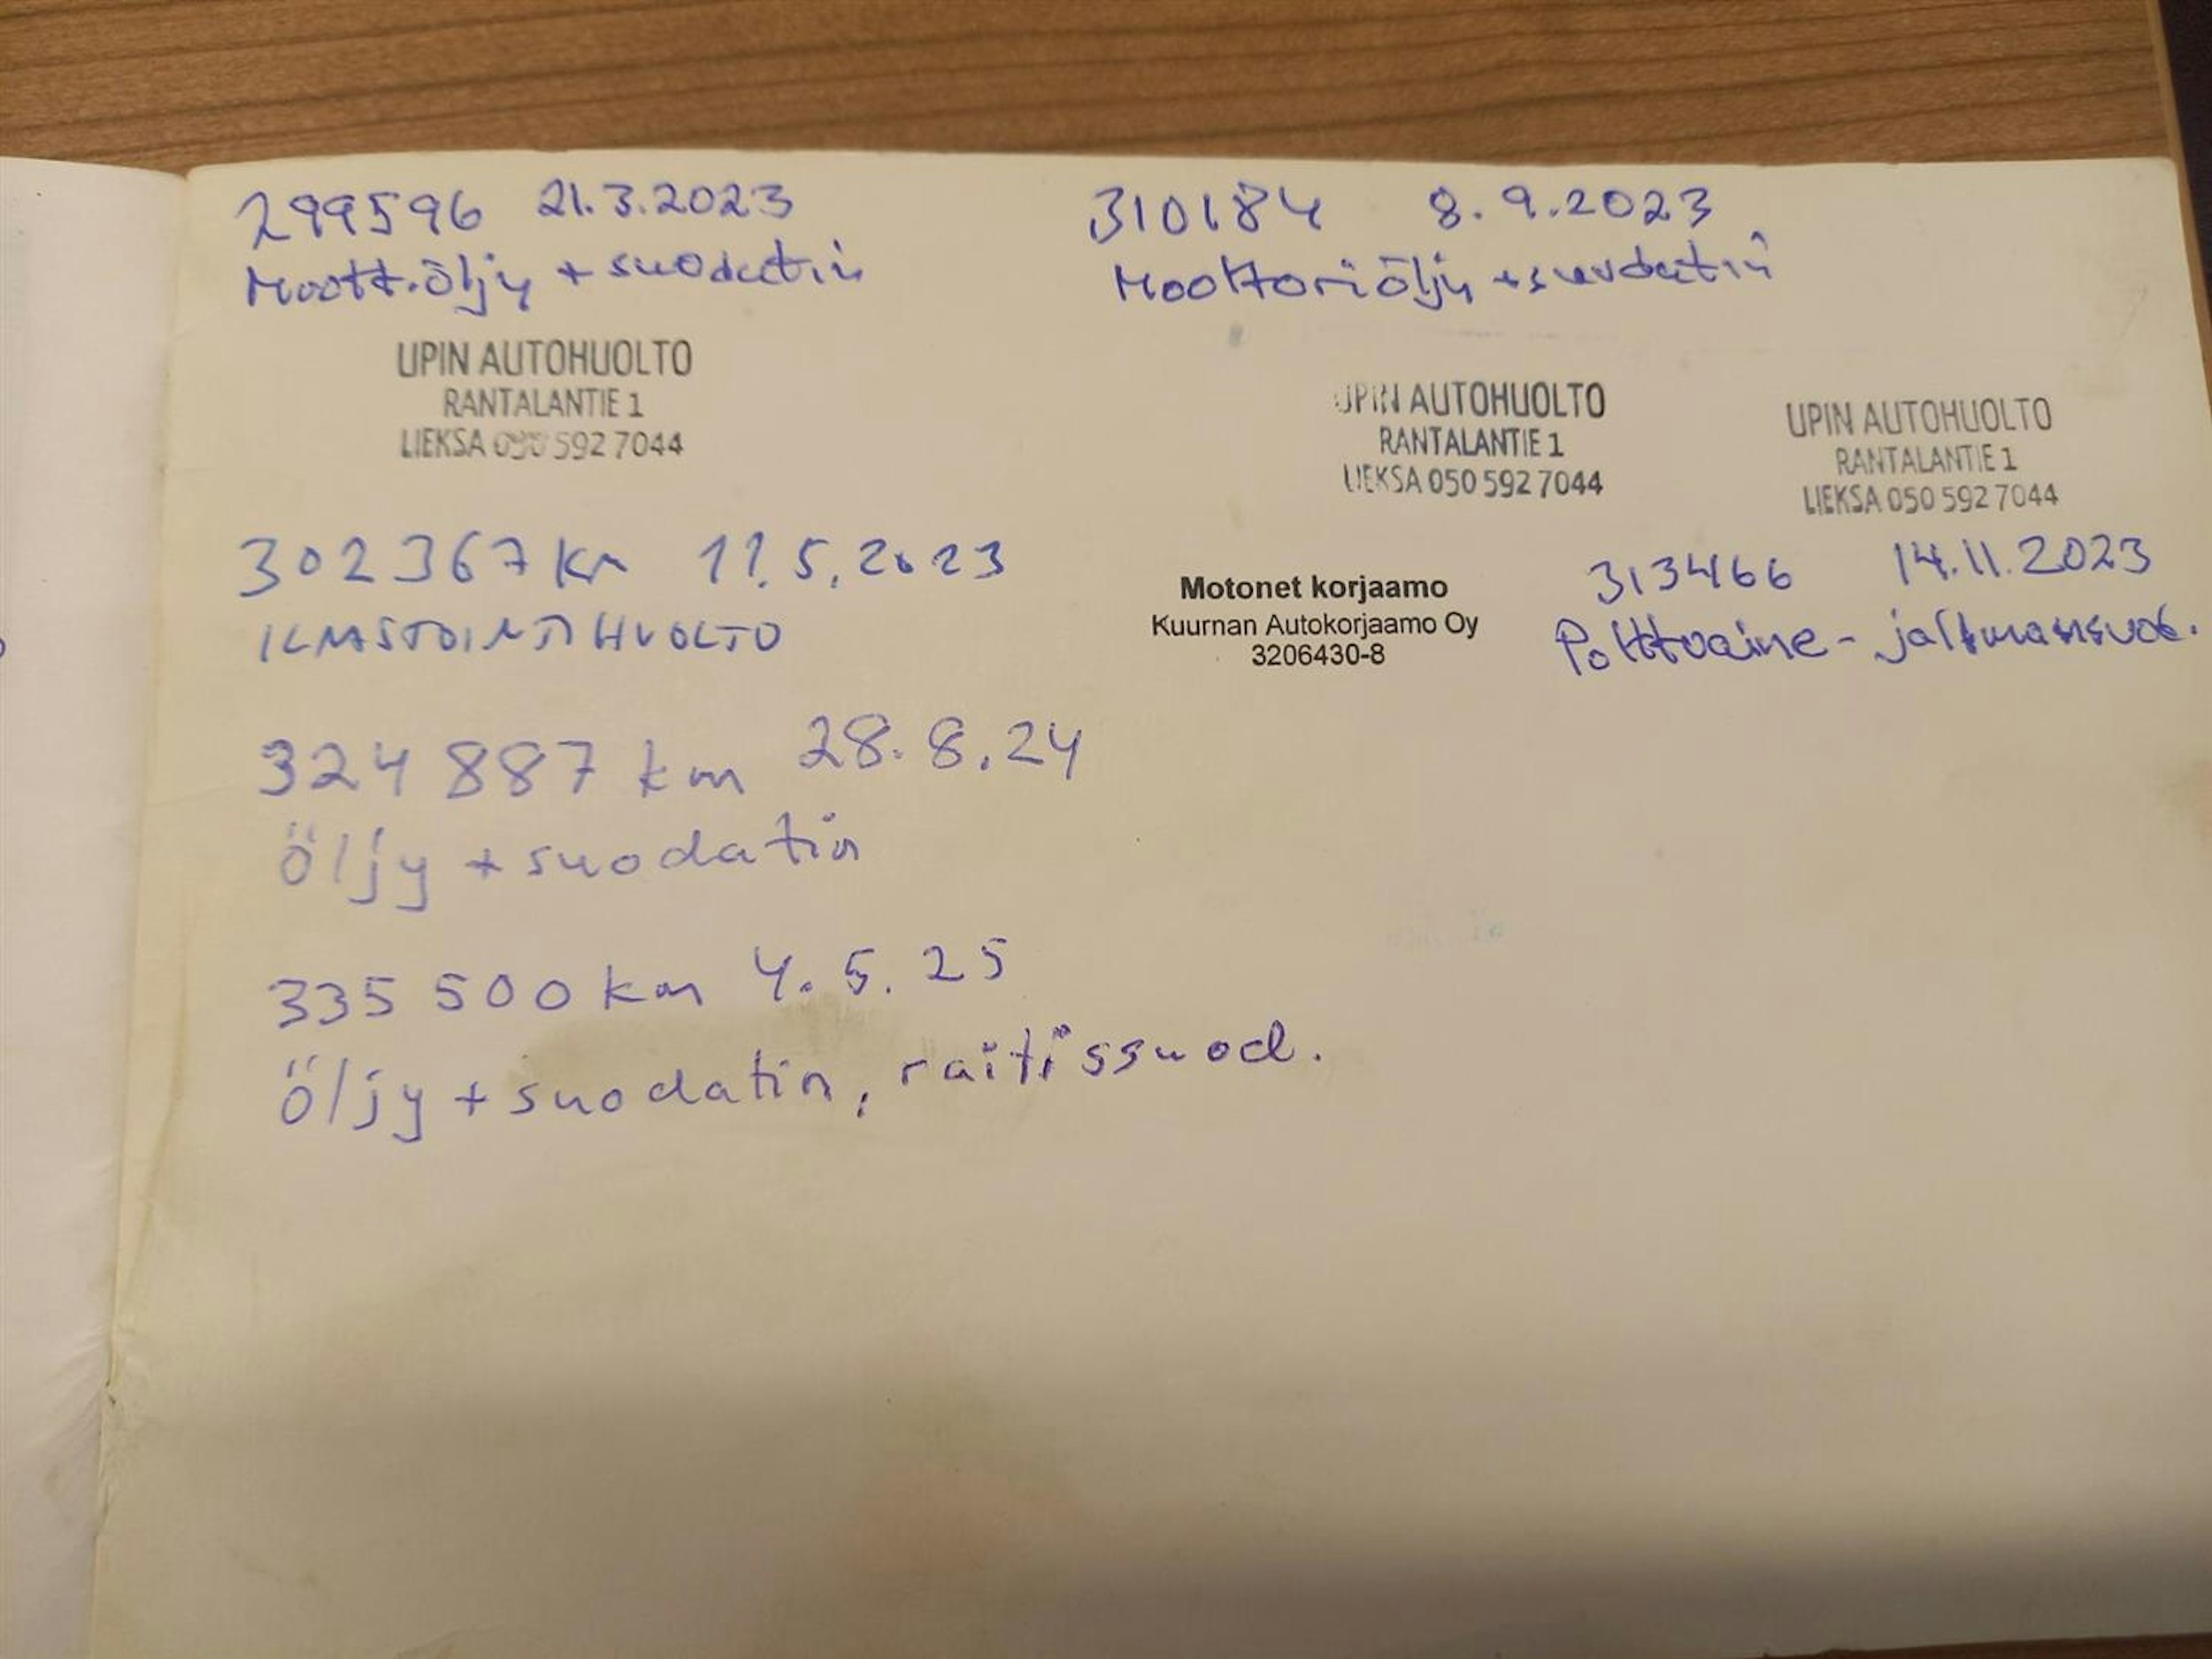 299596 21.3.2023
Moott.öljy + suodatin
UPIN AUTOHUOLTO
RANTALANTIE 1
LIEKSA 050 592 7044
310184 8.9.2023
Moottoriöljy + suodatin
UPIN AUTOHUOLTO
RANTALANTIE 1
LIEKSA 050 592 7044
UPIN AUTOHUOLTO
RANTALANTIE 1
LIEKSA 050 592 7044
302367 km 11.5.2023
ILMASTOINTIHUOLTO
Motonet korjaamo
Kuurnan Autokorjaamo Oy
3206430-8
313466 14.11.2023
Polttoaine- ja ilmansuod.
324 887 km 28.8.24
öljy + suodatin
335 500 km 4.5.25
öljy + suodatin, raitissuod.